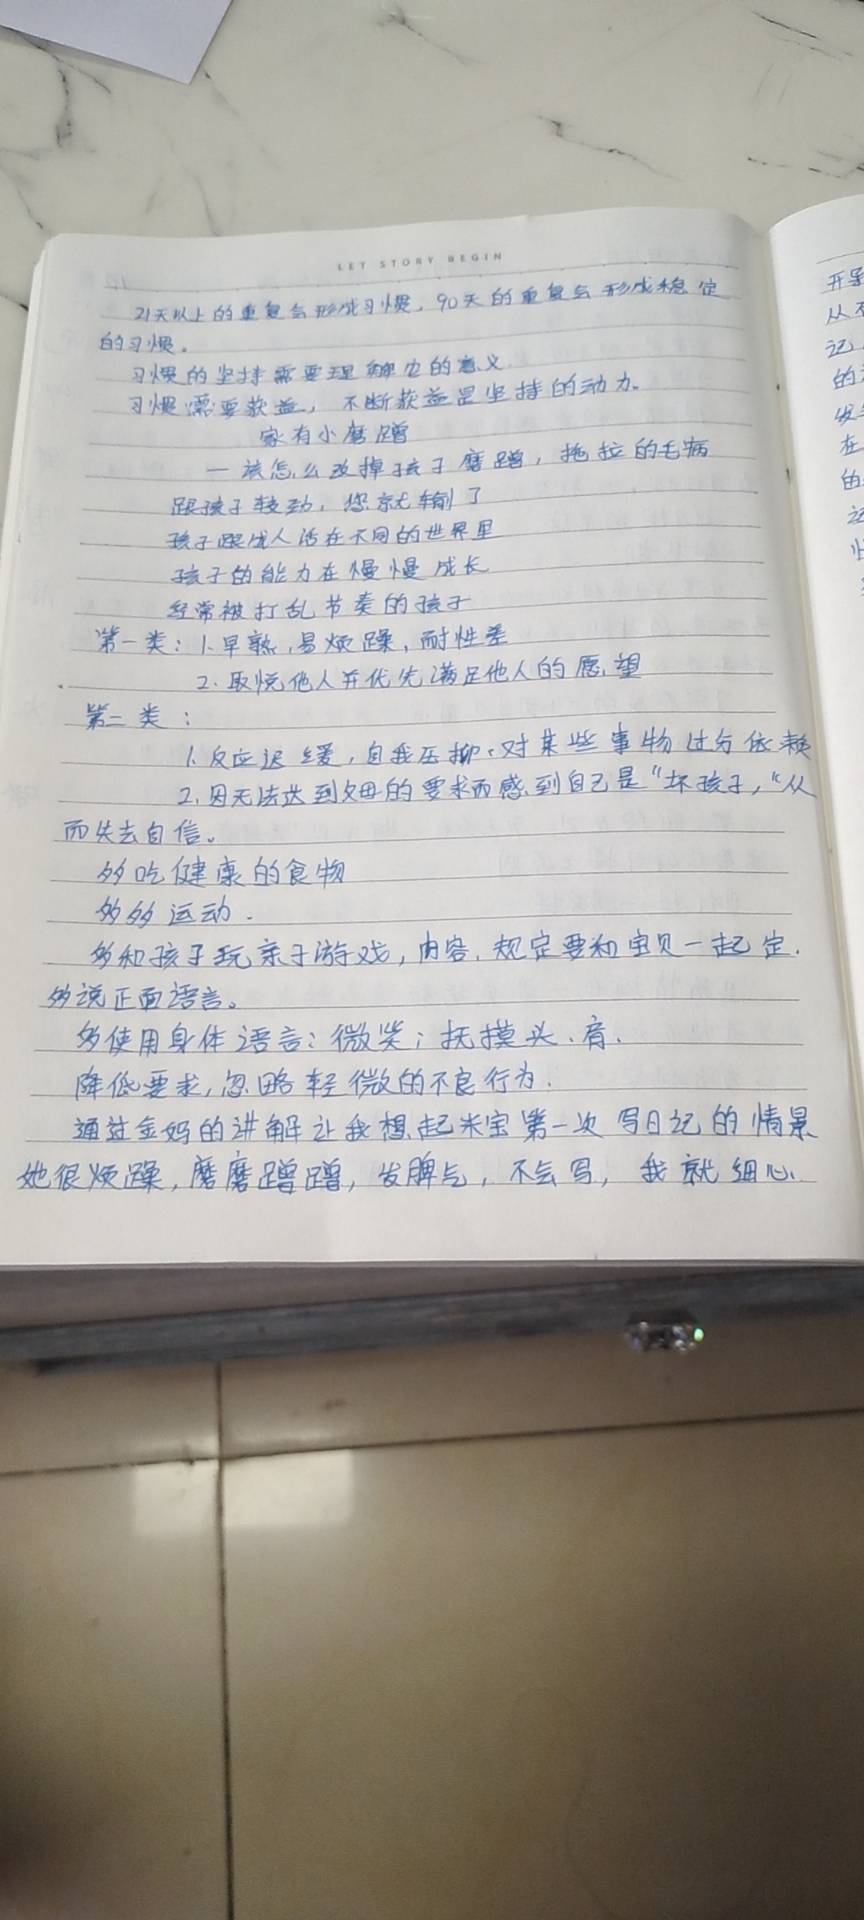 LET STORY BEGIN
21天以上的重复会形成习惯，90天的重复会形成稳定
的习惯。
习惯的坚持需要理解它的意义
习惯需要获益，不断获益是坚持的动力。
家有小磨蹭
一该怎么改掉孩子磨蹭，拖拉的毛病
跟孩子较劲，您就输了
孩子跟成人活在不同的世界里
孩子的能力在慢慢成长
经常被打乱节奏的孩子
第一类：1.早熟，易烦躁，耐性差
2.取悦他人并优先满足他人的愿望
第二类：
1.反应迟缓，自我压抑、对某些事物过分依赖
2.因无法达到父母的要求而感到自己是“坏孩子，“从
而失去自信。
多吃健康的食物
多多运动.
多和孩子玩亲子游戏，内容，规定要和宝贝一起定.
多说正面语言。
多使用身体语言：微笑；抚摸头、肩.
降低要求，忽略轻微的不良行为.
通过金妈的讲解让我想起米宝第一次写日记的情景
她很烦躁，磨磨蹭蹭，发脾气，不会写，我就细心
开导
从不
记
的
发
在
的